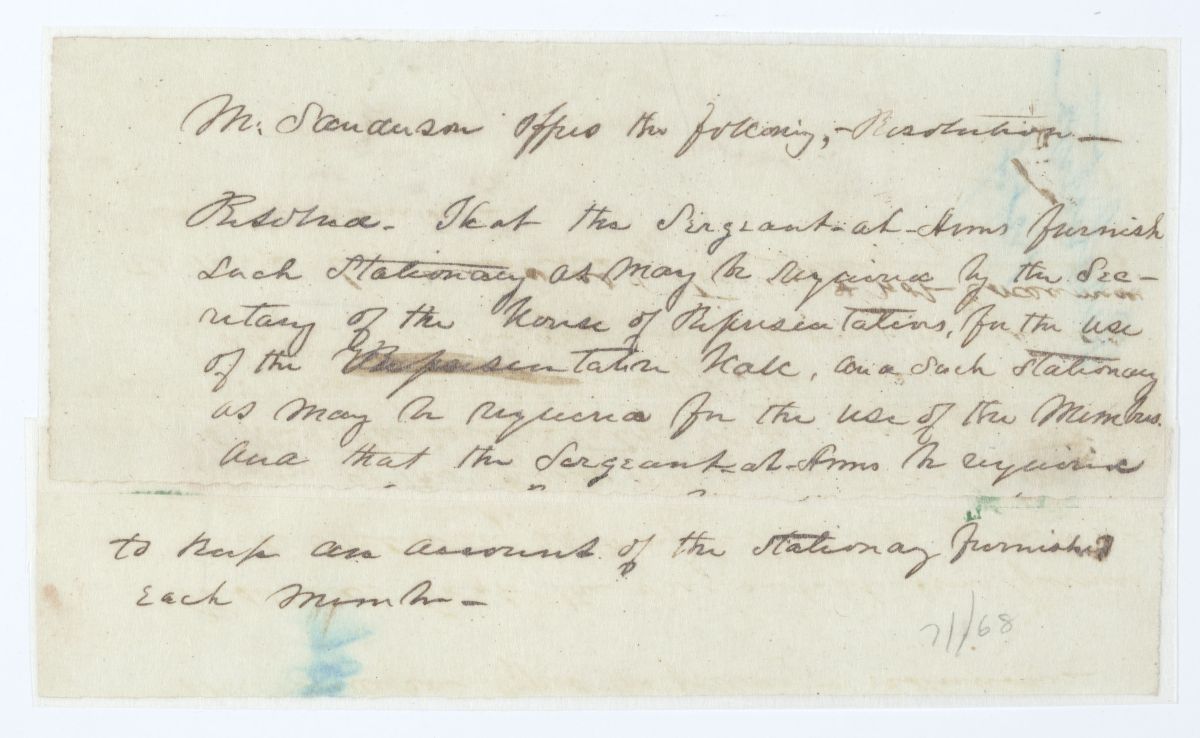 Mr. Sanderson offers the following, - Resolution -
Resolved - That the Sergeant-at-Arms furnish
such stationary as may be required by the Sec-
retary of the House of Representatives, for the use
of the Representative Hall, and such stationary
as may be required for the use of the Members.
And that the Sergeant-at-Arms be required
to keep an account of the stationary furnished
each Member -
71/68